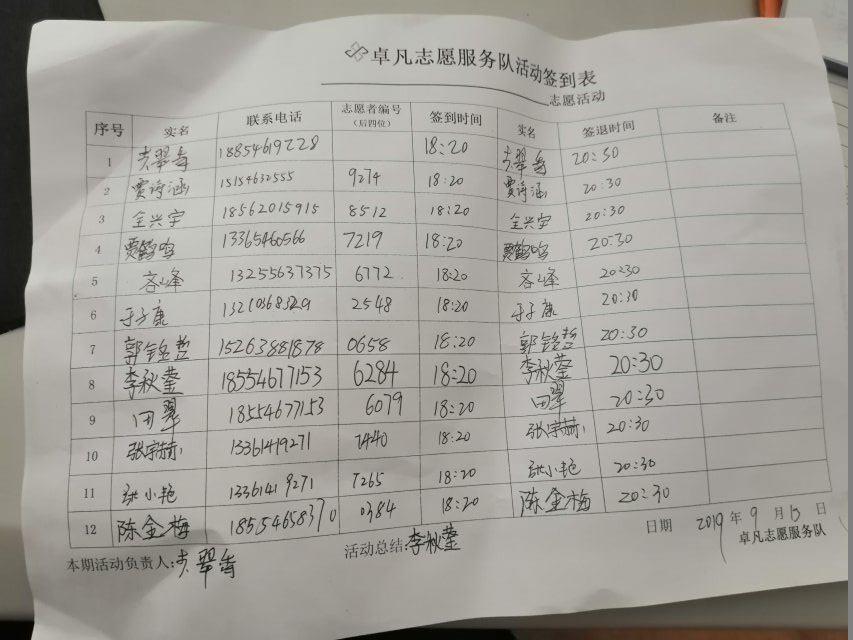 卓凡志愿服务队活动签到表
志愿活动
序号 实名 联系电话 志愿者编号（后四位） 签到时间 实名 签退时间 备注
1 18854619228 18:20 20:30
2 贾诗涵 15154632555 9274 18:20 贾诗涵 20:30
3 全兴宇 18562015915 8512 18:20 全兴宇 20:30
4 贾鹤鸣 13365460566 7219 18:20 贾鹤鸣 20:30
5 13255637375 6772 18:20 20:30
6 于子康 13210368529 2548 18:20 于子康 20:30
7 郭铭哲 15263881878 0658 18:20 郭铭哲 20:30
8 李秋莹 18554677153 6284 18:20 李秋莹 20:30
9 田翠 18554677153 6079 18:20 田翠 20:30
10 张宇赫 13361419271 7440 18:20 张宇赫 20:30
11 张小艳 13361419271 7265 18:20 张小艳 20:30
12 陈金梅 18554658370 0384 18:20 陈金梅 20:30
本期活动负责人: 活动总结:李秋莹 日期 2019年9月13日
卓凡志愿服务队